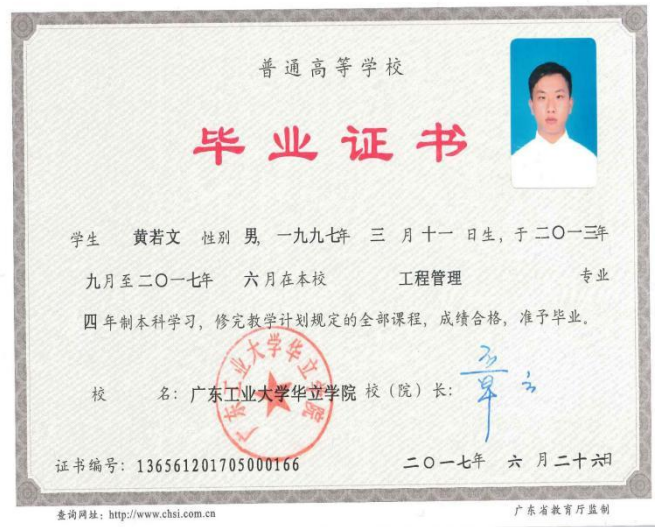 普通高等学校
毕业证书
学生 黄若文 性别 男, 一九九七年 三 月 十一 日生, 于 二〇一三年
九月至二〇一七年 六月在本校 工程管理 专业
四 年制本科学习, 修完教学计划规定的全部课程, 成绩合格, 准予毕业。
校 名: 广东工业大学华立学院 校（院）长:
广东工业大学华立学院
证书编号: 136561201705000166 二〇一七年 六 月二十六日
查询网址: http://www.chsi.com.cn 广东省教育厅监制